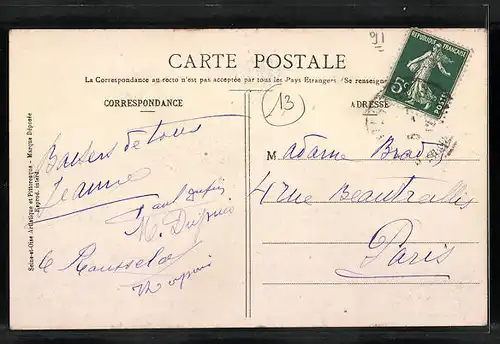 91
CARTE POSTALE
La Correspondance au recto n'est pas acceptée par tous les Pays Etrangers (Se renseign
CORRESPONDANCE
13
ADRESSE
REPUBLIQUE FRANÇAISE
5c
POSTES
Baisers de tous
Jeanne
Paul Dupuis
M. Dupuis
Madame Brady
4 rue Beautreillis
Paris
Seine-et-Oise Artistique et Pittoresque - Marque Déposée
Reprod. interd.